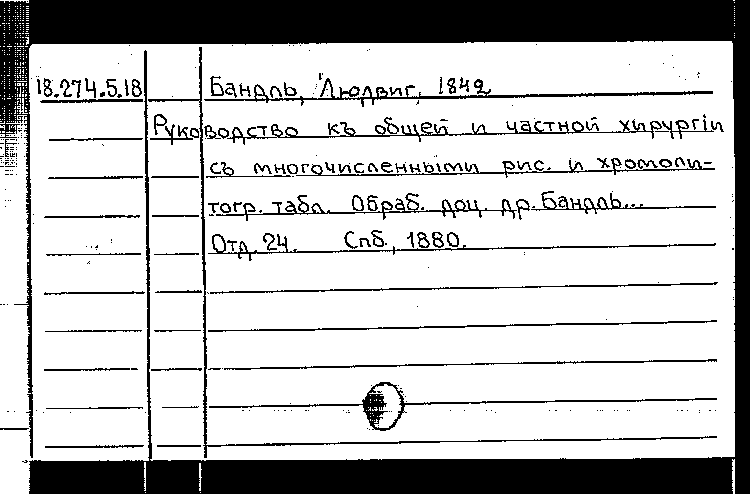 18.274.5.18 Бандль, Людвиг, 1842
Руководство къ общей и частной хирургiи
съ многочисленными рис. и хромоли-
тогр. табл. Обраб. доц. др. Бандль...
Отд. 24. Спб., 1880.